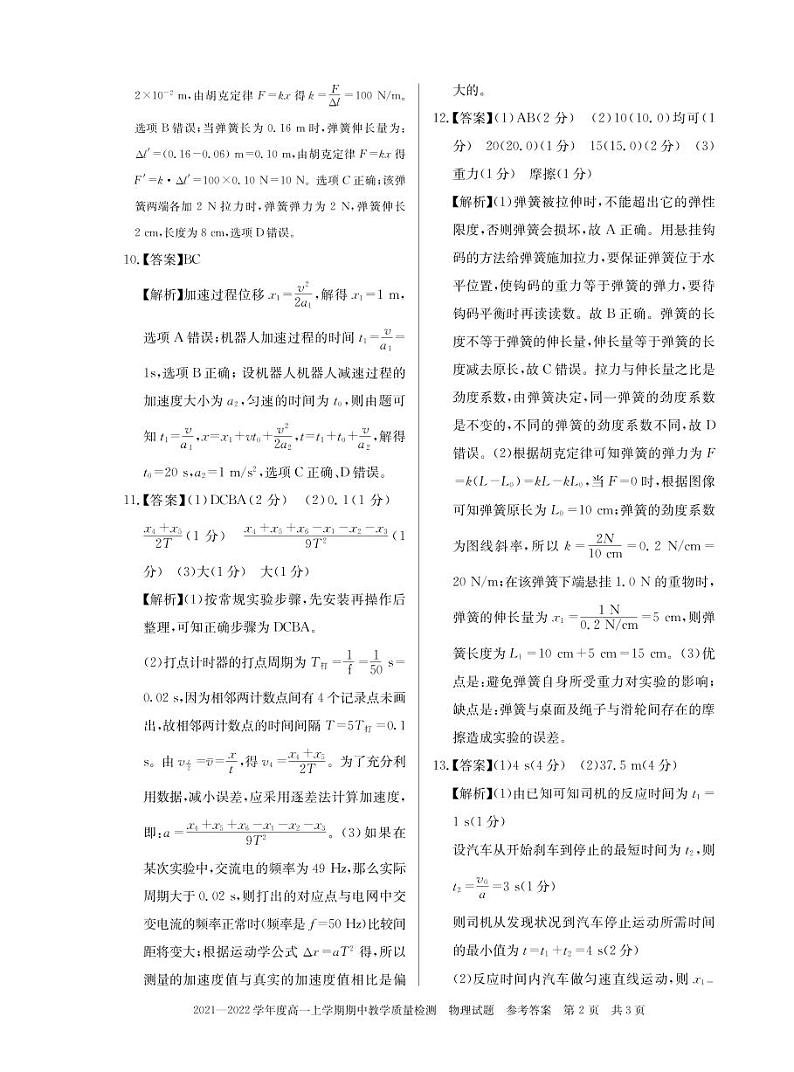 2×10⁻² m,由胡克定律 F=kx 得 k=F/Δl=100 N/m。
选项 B 错误;当弹簧长为 0.16 m 时,弹簧伸长量为:
Δl′=(0.16-0.06) m=0.10 m,由胡克定律 F=kx 得
F′=k·Δl′=100×0.10 N=10 N。选项 C 正确;该弹
簧两端各加 2 N 拉力时,弹簧弹力为 2 N,弹簧伸长
2 cm,长度为 8 cm,选项 D 错误。
10.【答案】BC
【解析】加速过程位移 x₁=v²/2a₁,解得 x₁=1 m,
选项 A 错误;机器人加速过程的时间 t₁=v/a₁=
1s,选项 B 正确;设机器人机器人减速过程的
加速度大小为 a₂,匀速的时间为 t₀,则由题可
知 t₁=v/a₁,x=x₁+vt₀+v²/2a₂,t=t₁+t₀+v/a₂,解得
t₀=20 s,a₂=1 m/s²,选项 C 正确、D 错误。
11.【答案】(1)DCBA(2 分) (2)0.1(1 分)
(x₄+x₅)/2T(1 分) (x₄+x₅+x₆-x₁-x₂-x₃)/9T²(1
分) (3)大(1 分) 大(1 分)
【解析】(1)按常规实验步骤,先安装再操作后
整理,可知正确步骤为 DCBA。
(2)打点计时器的打点周期为 T打=1/f=1/50 s=
0.02 s,因为相邻两计数点间有 4 个记录点未画
出,故相邻两计数点的时间间隔 T=5T打=0.1
s。由 v_{t/2}=v̄=x/t,得 v₄=(x₄+x₅)/2T。为了充分利
用数据,减小误差,应采用逐差法计算加速度,
即:a=(x₄+x₅+x₆-x₁-x₂-x₃)/9T²。(3)如果在
某次实验中,交流电的频率为 49 Hz,那么实际
周期大于 0.02 s,则打出的对应点与电网中交
变电流的频率正常时(频率是 f=50 Hz)比较间
距将变大;根据运动学公式 Δx=aT² 得,所以
测量的加速度值与真实的加速度值相比是偏
大的。
12.【答案】(1)AB(2 分) (2)10(10.0)均可(1
分) 20(20.0)(1 分) 15(15.0)(2 分) (3)
重力(1 分) 摩擦(1 分)
【解析】(1)弹簧被拉伸时,不能超出它的弹性
限度,否则弹簧会损坏,故 A 正确。用悬挂钩
码的方法给弹簧施加拉力,要保证弹簧位于水
平位置,使钩码的重力等于弹簧的弹力,要待
钩码平衡时再读读数。故 B 正确。弹簧的长
度不等于弹簧的伸长量,伸长量等于弹簧的长
度减去原长,故 C 错误。拉力与伸长量之比是
劲度系数,由弹簧决定,同一弹簧的劲度系数
是不变的,不同的弹簧的劲度系数不同,故 D
错误。(2)根据胡克定律可知弹簧的弹力为 F
=k(L-L₀)=kL-kL₀,当 F=0 时,根据图像
可知弹簧原长为 L₀=10 cm;弹簧的劲度系数
为图线斜率,所以 k=2N/10 cm=0.2 N/cm=
20 N/m;在该弹簧下端悬挂 1.0 N 的重物时,
弹簧的伸长量为 x₁=1 N/0.2 N/cm=5 cm,则弹
簧长度为 L₁=10 cm+5 cm=15 cm。(3)优
点是:避免弹簧自身所受重力对实验的影响;
缺点是:弹簧与桌面及绳子与滑轮间存在的摩
擦造成实验的误差。
13.【答案】(1)4 s(4 分) (2)37.5 m(4 分)
【解析】(1)由已知可知司机的反应时间为 t₁=
1 s(1 分)
设汽车从开始刹车到停止的最短时间为 t₂,则
t₂=v₀/a=3 s(1 分)
则司机从发现状况到汽车停止运动所需时间
的最小值为 t=t₁+t₂=4 s(2 分)
(2)反应时间内汽车做匀速直线运动,则 x₁=
2021—2022 学年度高一上学期期中教学质量检测 物理试题 参考答案 第 2 页 共 3 页